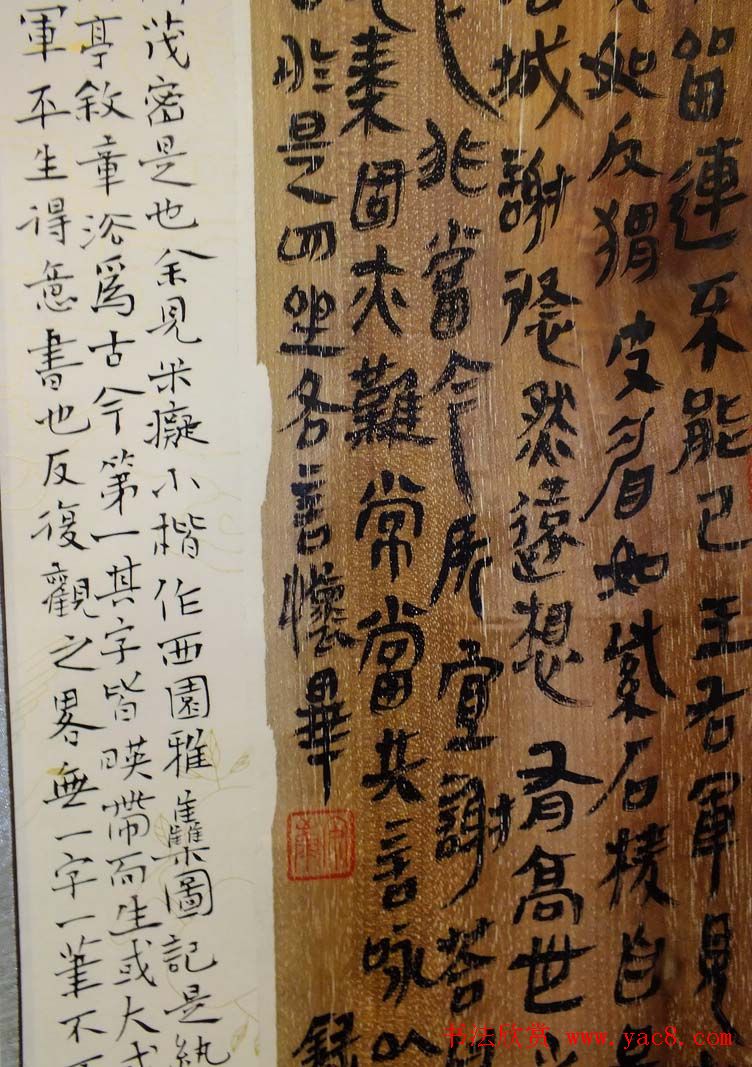 留連不能已王右軍見
如反猬皮眉如紫石棱自
城謝悠然遠想有高世
非當今所宜謝答
集固亦難常當共言詠以
於是四坐各言懷畢
錄
茂密是也余見米癡小楷作西園雅集圖記是紈
亭敘章法爲古今第一其字皆映帶而生或大或
軍平生得意書也反復觀之畧無一字一筆不
书法欣赏 www.yac8.com